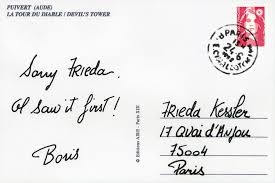 PUIVERT (AUDE)
LA TOUR DU DIABLE / DEVIL'S TOWER
PARIS
24-6
Sorry Frieda.
Al saw it first!
Boris
© Editions AIRE - Paris XIX
Frieda Kessler
17 Quai d'Anjou
75004
Paris